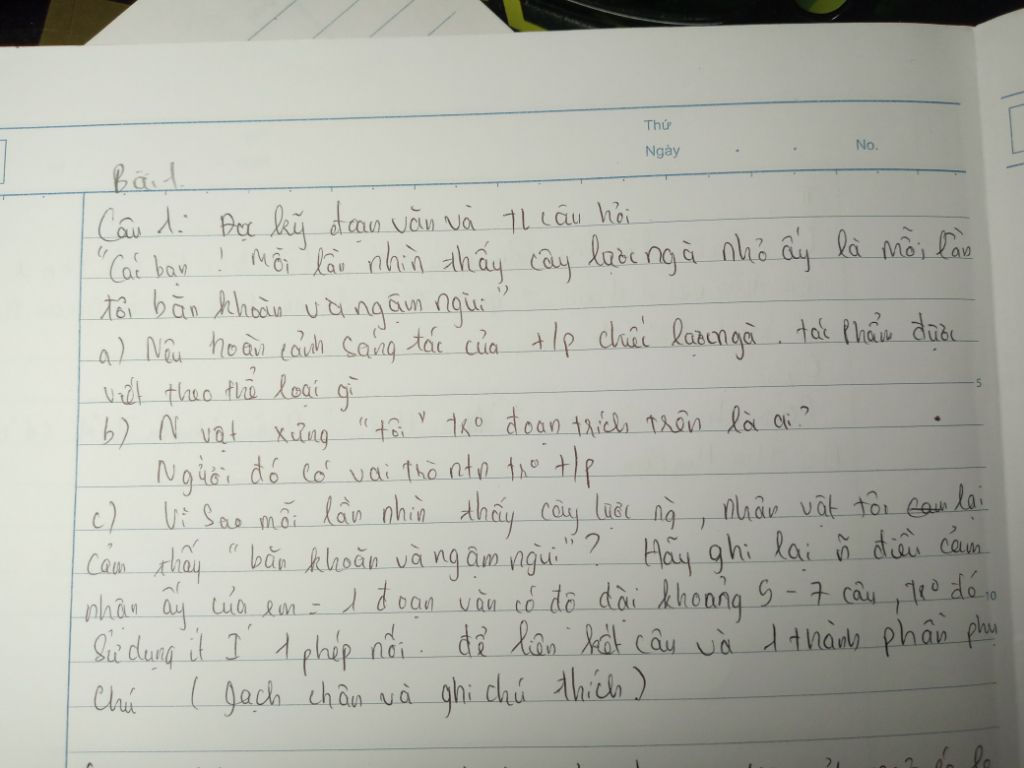 Thứ
Ngày . . No.
Bài 1
Câu 1: Đọc kỹ đoạn văn và tl câu hỏi
"Các bạn ! Mỗi lần nhìn thấy cây lược ngà nhỏ ấy là mỗi lần
tôi băn khoăn và ngậm ngùi"
a) Nêu hoàn cảnh sáng tác của t/p chiếc lược ngà. tác phẩm được
viết theo thể loại gì
5
b) N vật xưng "tôi" tro đoạn trích trên là ai?
Người đó có vai trò ntn tro t/p
c) Vì sao mỗi lần nhìn thấy cây lược ng, nhân vật tôi lại
cảm thấy "băn khoăn và ngậm ngùi"? Hãy ghi lại ñ điều cảm
nhận ấy của em = 1 đoạn văn có độ dài khoảng 5 - 7 câu, tro đó
10
sử dụng ít I 1 phép nối. để liên kết câu và 1 thành phần phụ
chú (gạch chân và ghi chú thích)